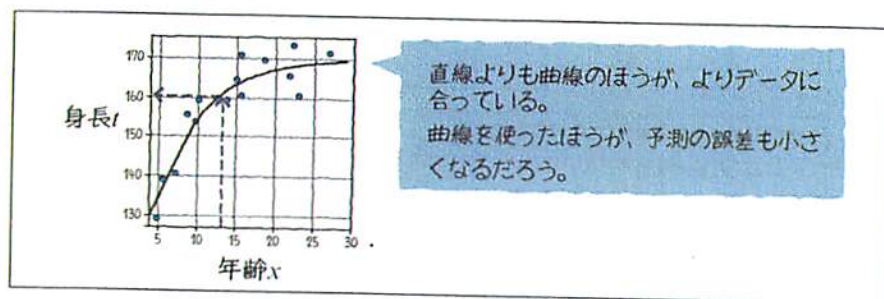 170
160
150
140
130
身長t
5
10
15
20
25
30
年齢x
直線よりも曲線のほうが、よりデータに
合っている。
曲線を使ったほうが、予測の誤差も小さ
くなるだろう。